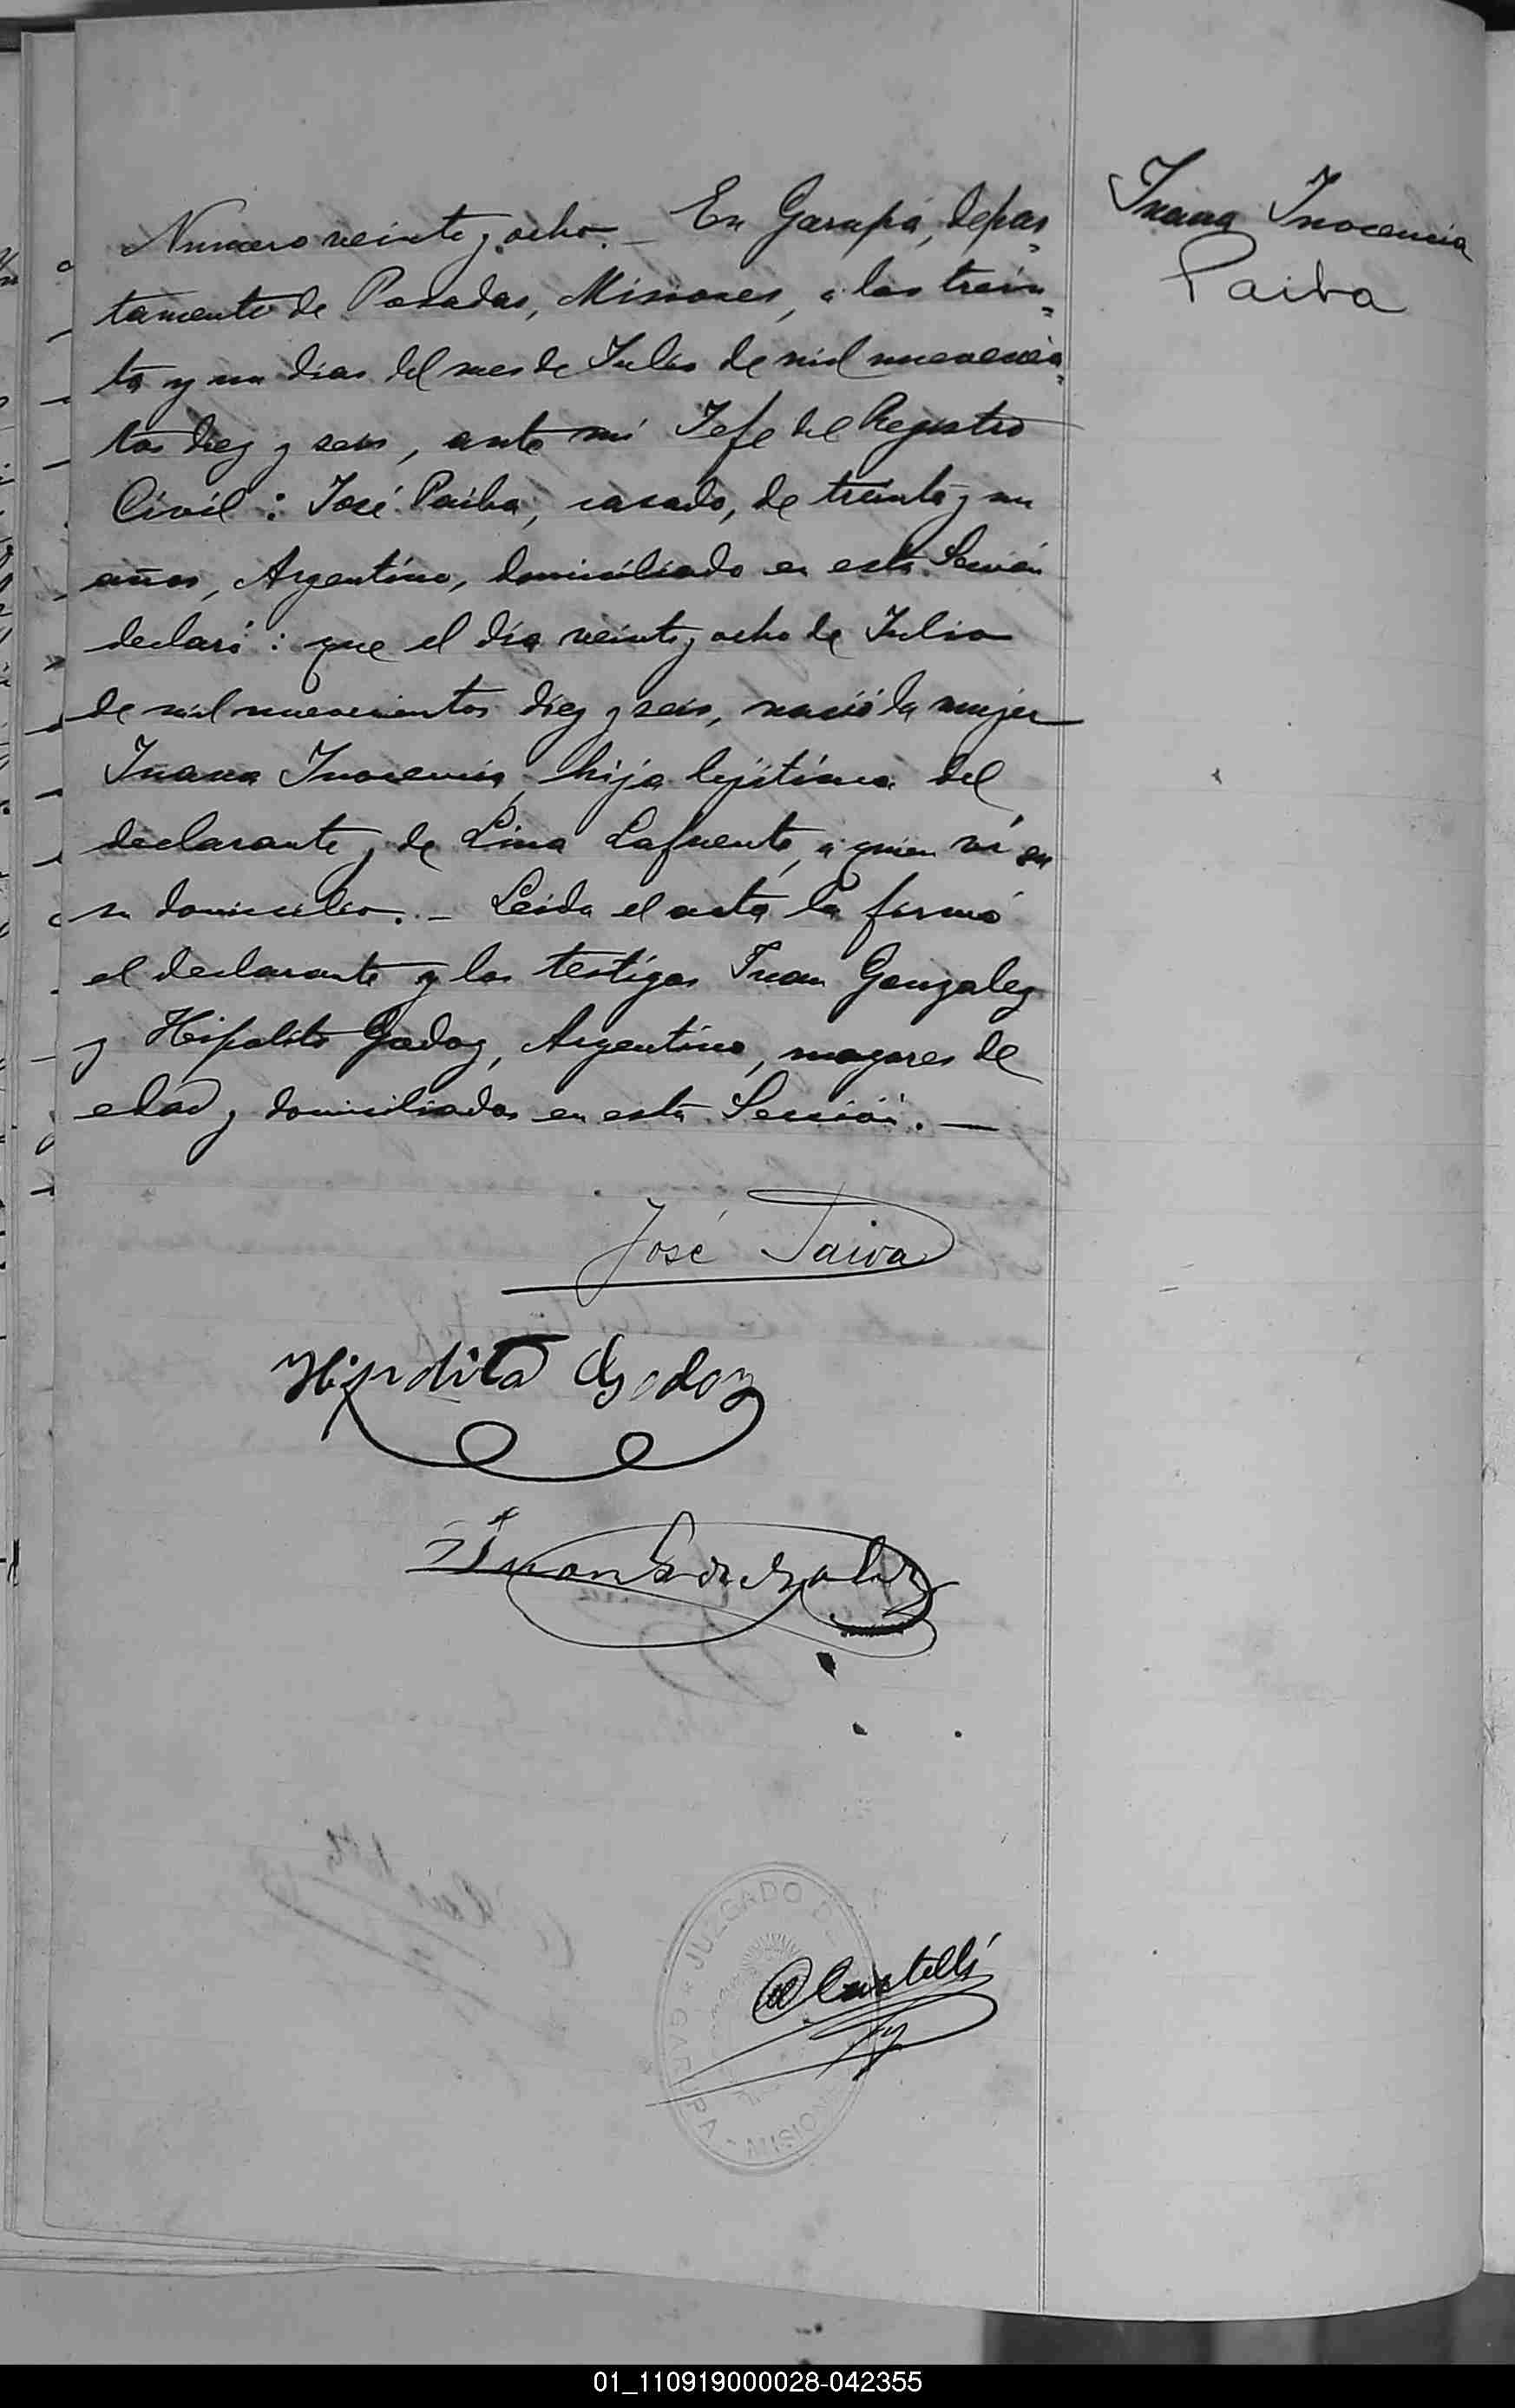 Juana Inocencia
Paiba
Numero veinte y ocho. — En Garupá, depar=
tamento de Posadas, Misiones, a los trein=
ta y un dias del mes de Julio de mil novecien=
tos diez y seis, ante mi Jefe del Registro
Civil: José Paiba, casado, de treinta y un
años, Argentino, domiciliado en esta Sección
declaró: que el día veinte y ocho de Julio
de mil novecientos diez y seis, nació la mujer
Juana Inocencia, hija lejitima del
declarante y de Lina Lafuente, a quien ví en
su domicilio. — Leida el acta la firmó
el declarante y los testigos Juan Gonzalez
y Hipolito Godoy, Argentino, mayores de
edad y domiciliados en esta Sección. —
José Paiva
Hipolito Godoy
Juan Gonzalez
JUZGADO DE
GARUPÁ - MISIONES
Castelli
01_110919000028-042355